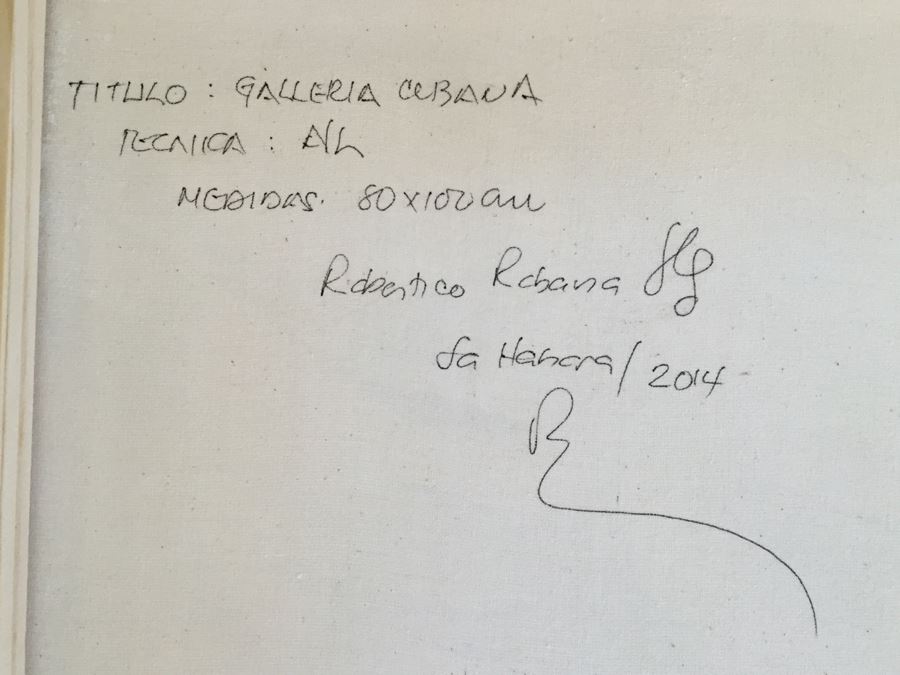 TITULO : GALLERIA CUBANA
TECNICA : A/L
MEDIDAS. 80X100 cm
Robertico Rabana
La Habana/2014